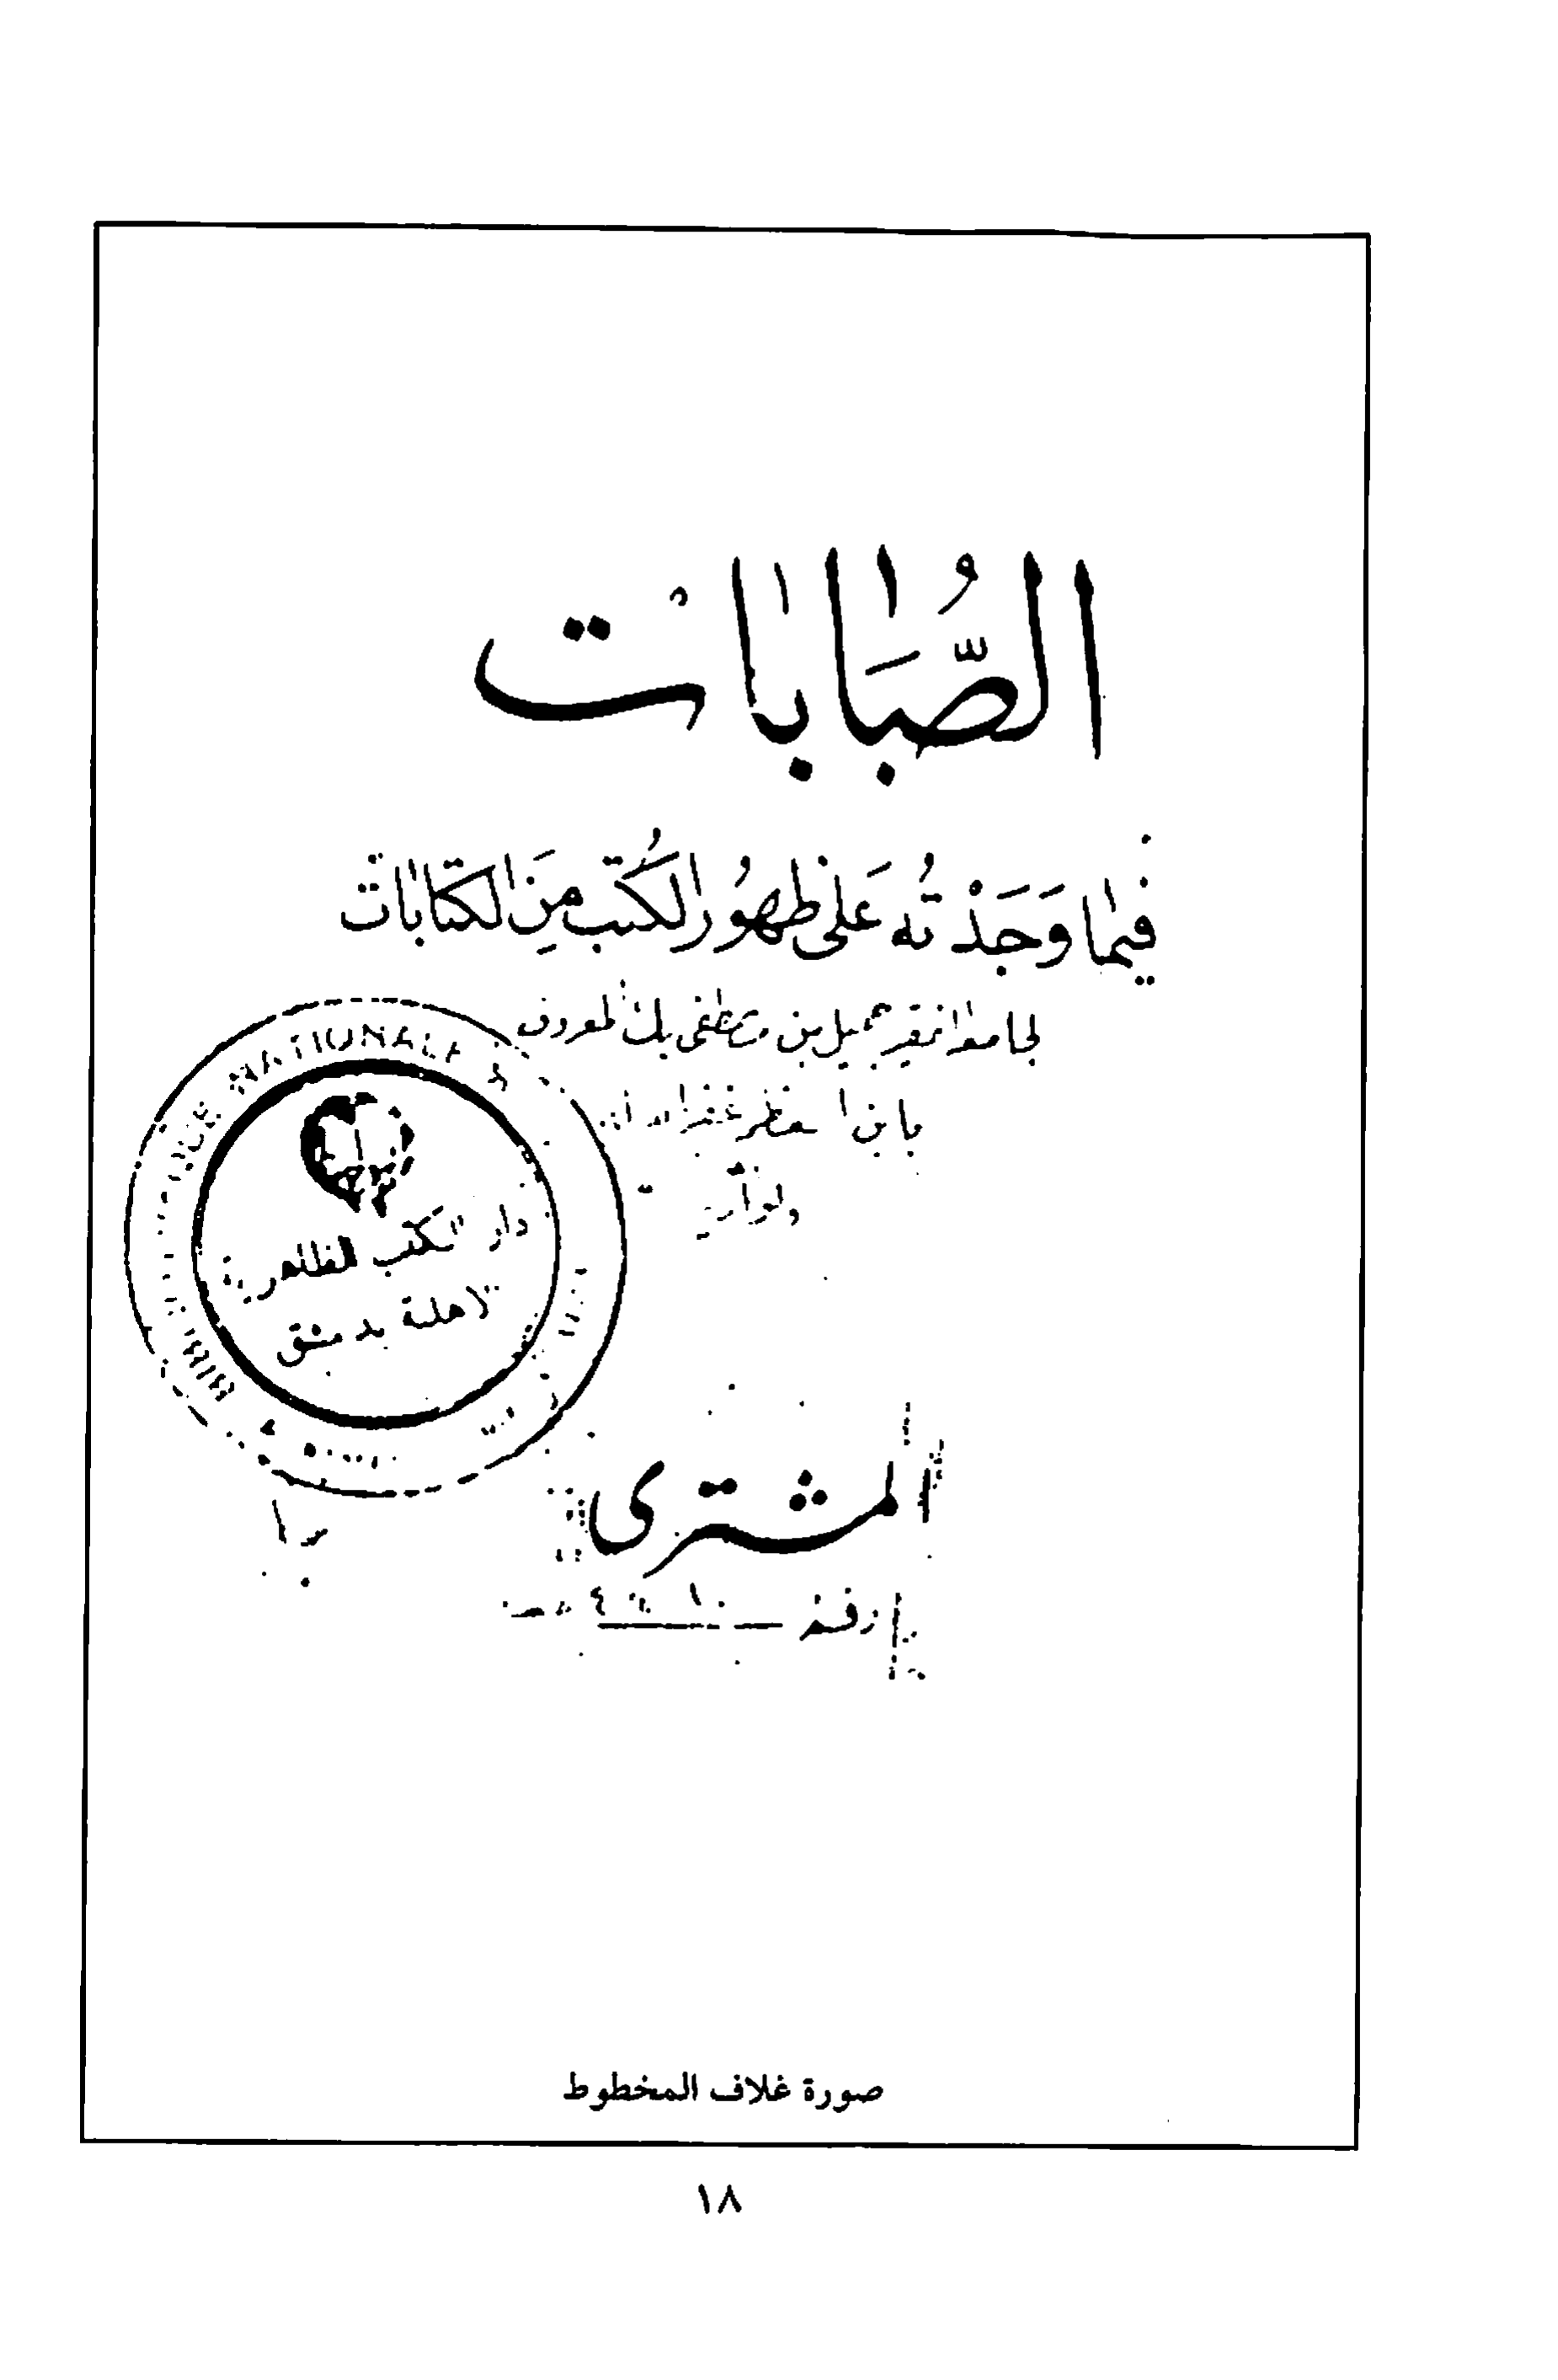 الصُّبَابَات
فيما وَجَدْتُه عَلى ظهُور الكُتب مِنَ الكتابات
لجامعه الفقير جميل بن مصطفى بك المعروف
بابن العظم غفر الله له
ولوالديه
NATIONALE
دار الكتب الظاهرية
الاهلية بدمشق
المشترى
رقم
صورة غلاف المخطوط
١٨